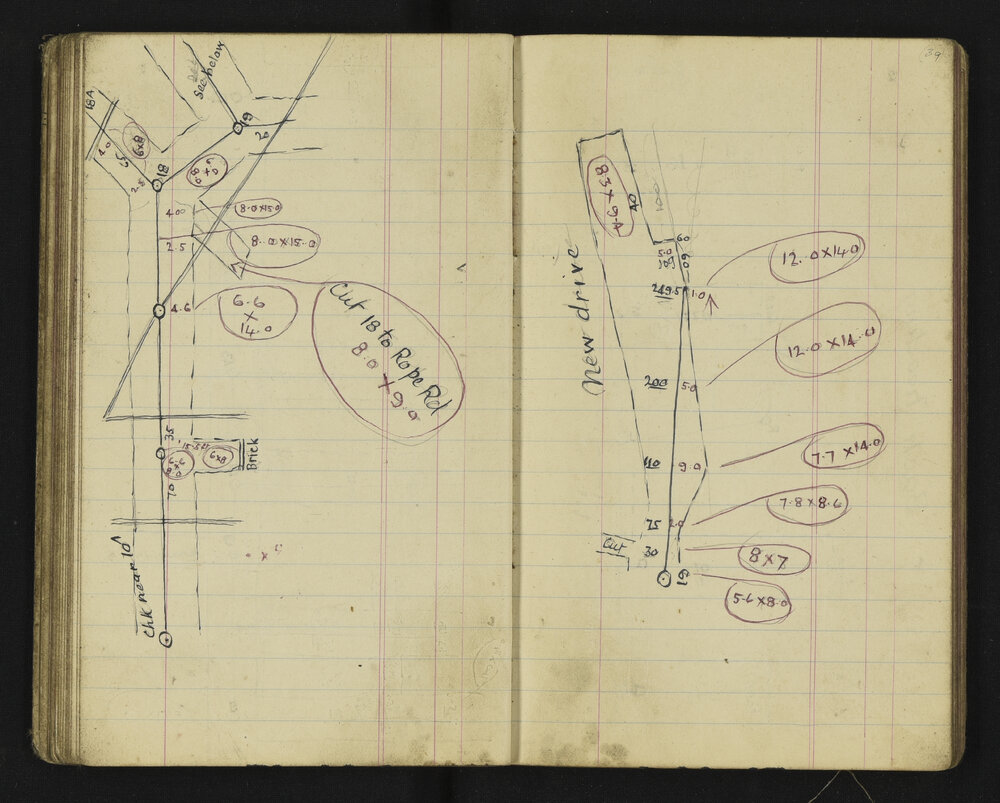 18A
4.0
6x8
15
18
2.5
see below
19
20
5.0 x 8.0
400
8.0 x 15.0
2.5
8.0 x 15.0
4.6
6.6
x
14.0
Cut 18 to Rope Rd
8.0 x 9.0
35
6x8
Brick
70
Chk near 10^
39
New drive
8.3 x 9.4
40
100
60
249.5
1.0
12.0 x 14.0
200
5.0
12.0 x 14.0
110
9.0
7.7 x 14.0
75
2.0
7.8 x 8.6
Cut
30
8 x 7
19
5.6 x 8.0